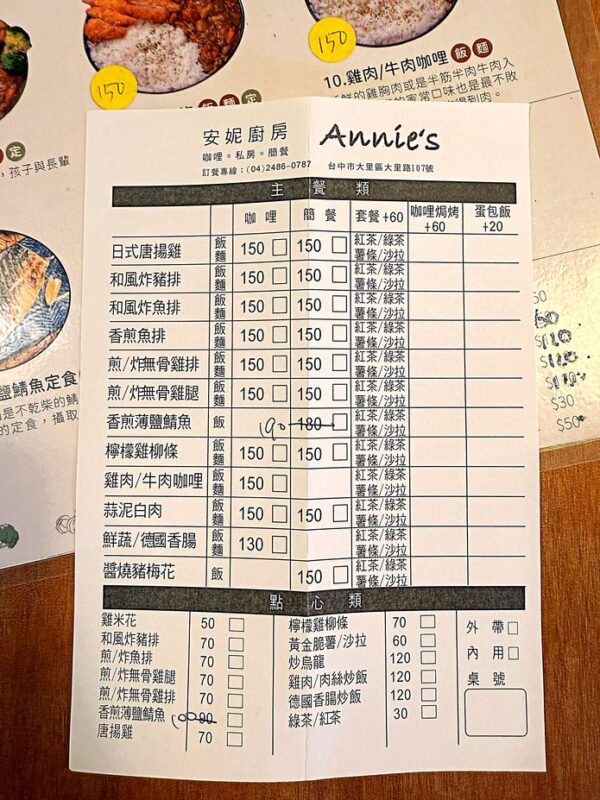 150
150
10.雞肉/牛肉咖哩 飯 麵
飯 麵 定
定
，孩子與長輩
安妮廚房 Annie's
咖哩。私房。簡餐
訂餐專線：(04)2486-0787 台中市大里區大里路107號
主餐類
咖哩 簡餐 套餐+60 咖哩焗烤+60 蛋包飯+20
日式唐揚雞 飯麵 150 □ 150 □ 紅茶/綠茶 薯條/沙拉
和風炸豬排 飯麵 150 □ 150 □ 紅茶/綠茶 薯條/沙拉
和風炸魚排 飯麵 150 □ 150 □ 紅茶/綠茶 薯條/沙拉
香煎魚排 飯麵 150 □ 150 □ 紅茶/綠茶 薯條/沙拉
煎/炸無骨雞排 飯麵 150 □ 150 □ 紅茶/綠茶 薯條/沙拉
煎/炸無骨雞腿 飯麵 150 □ 150 □ 紅茶/綠茶 薯條/沙拉
香煎薄鹽鯖魚 飯 190 180 □ 紅茶/綠茶 薯條/沙拉
檸檬雞柳條 飯麵 150 □ 150 □ 紅茶/綠茶 薯條/沙拉
雞肉/牛肉咖哩 飯麵 150 □ 紅茶/綠茶 薯條/沙拉
蒜泥白肉 飯麵 150 □ 150 □ 紅茶/綠茶 薯條/沙拉
鮮蔬/德國香腸 飯麵 130 □ 紅茶/綠茶 薯條/沙拉
醬燒豬梅花 飯 150 □ 紅茶/綠茶 薯條/沙拉
點心類
雞米花 50 □ 檸檬雞柳條 70 □ 外帶□
和風炸豬排 70 □ 黃金脆薯/沙拉 60 □ 內用□
煎/炸魚排 70 □ 炒烏龍 120 □ 桌號
煎/炸無骨雞腿 70 □ 雞肉/肉絲炒飯 120 □
煎/炸無骨雞排 70 □ 德國香腸炒飯 120 □
香煎薄鹽鯖魚 100 90 □ 綠茶/紅茶 30 □
唐揚雞 70 □
鹽鯖魚定食
是不乾柴的鯖
的定食，攝取
$30
$50